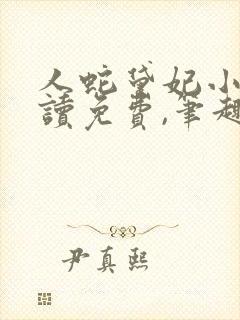 人蛇黛妃小
讀免費,筆趣
尹真熙